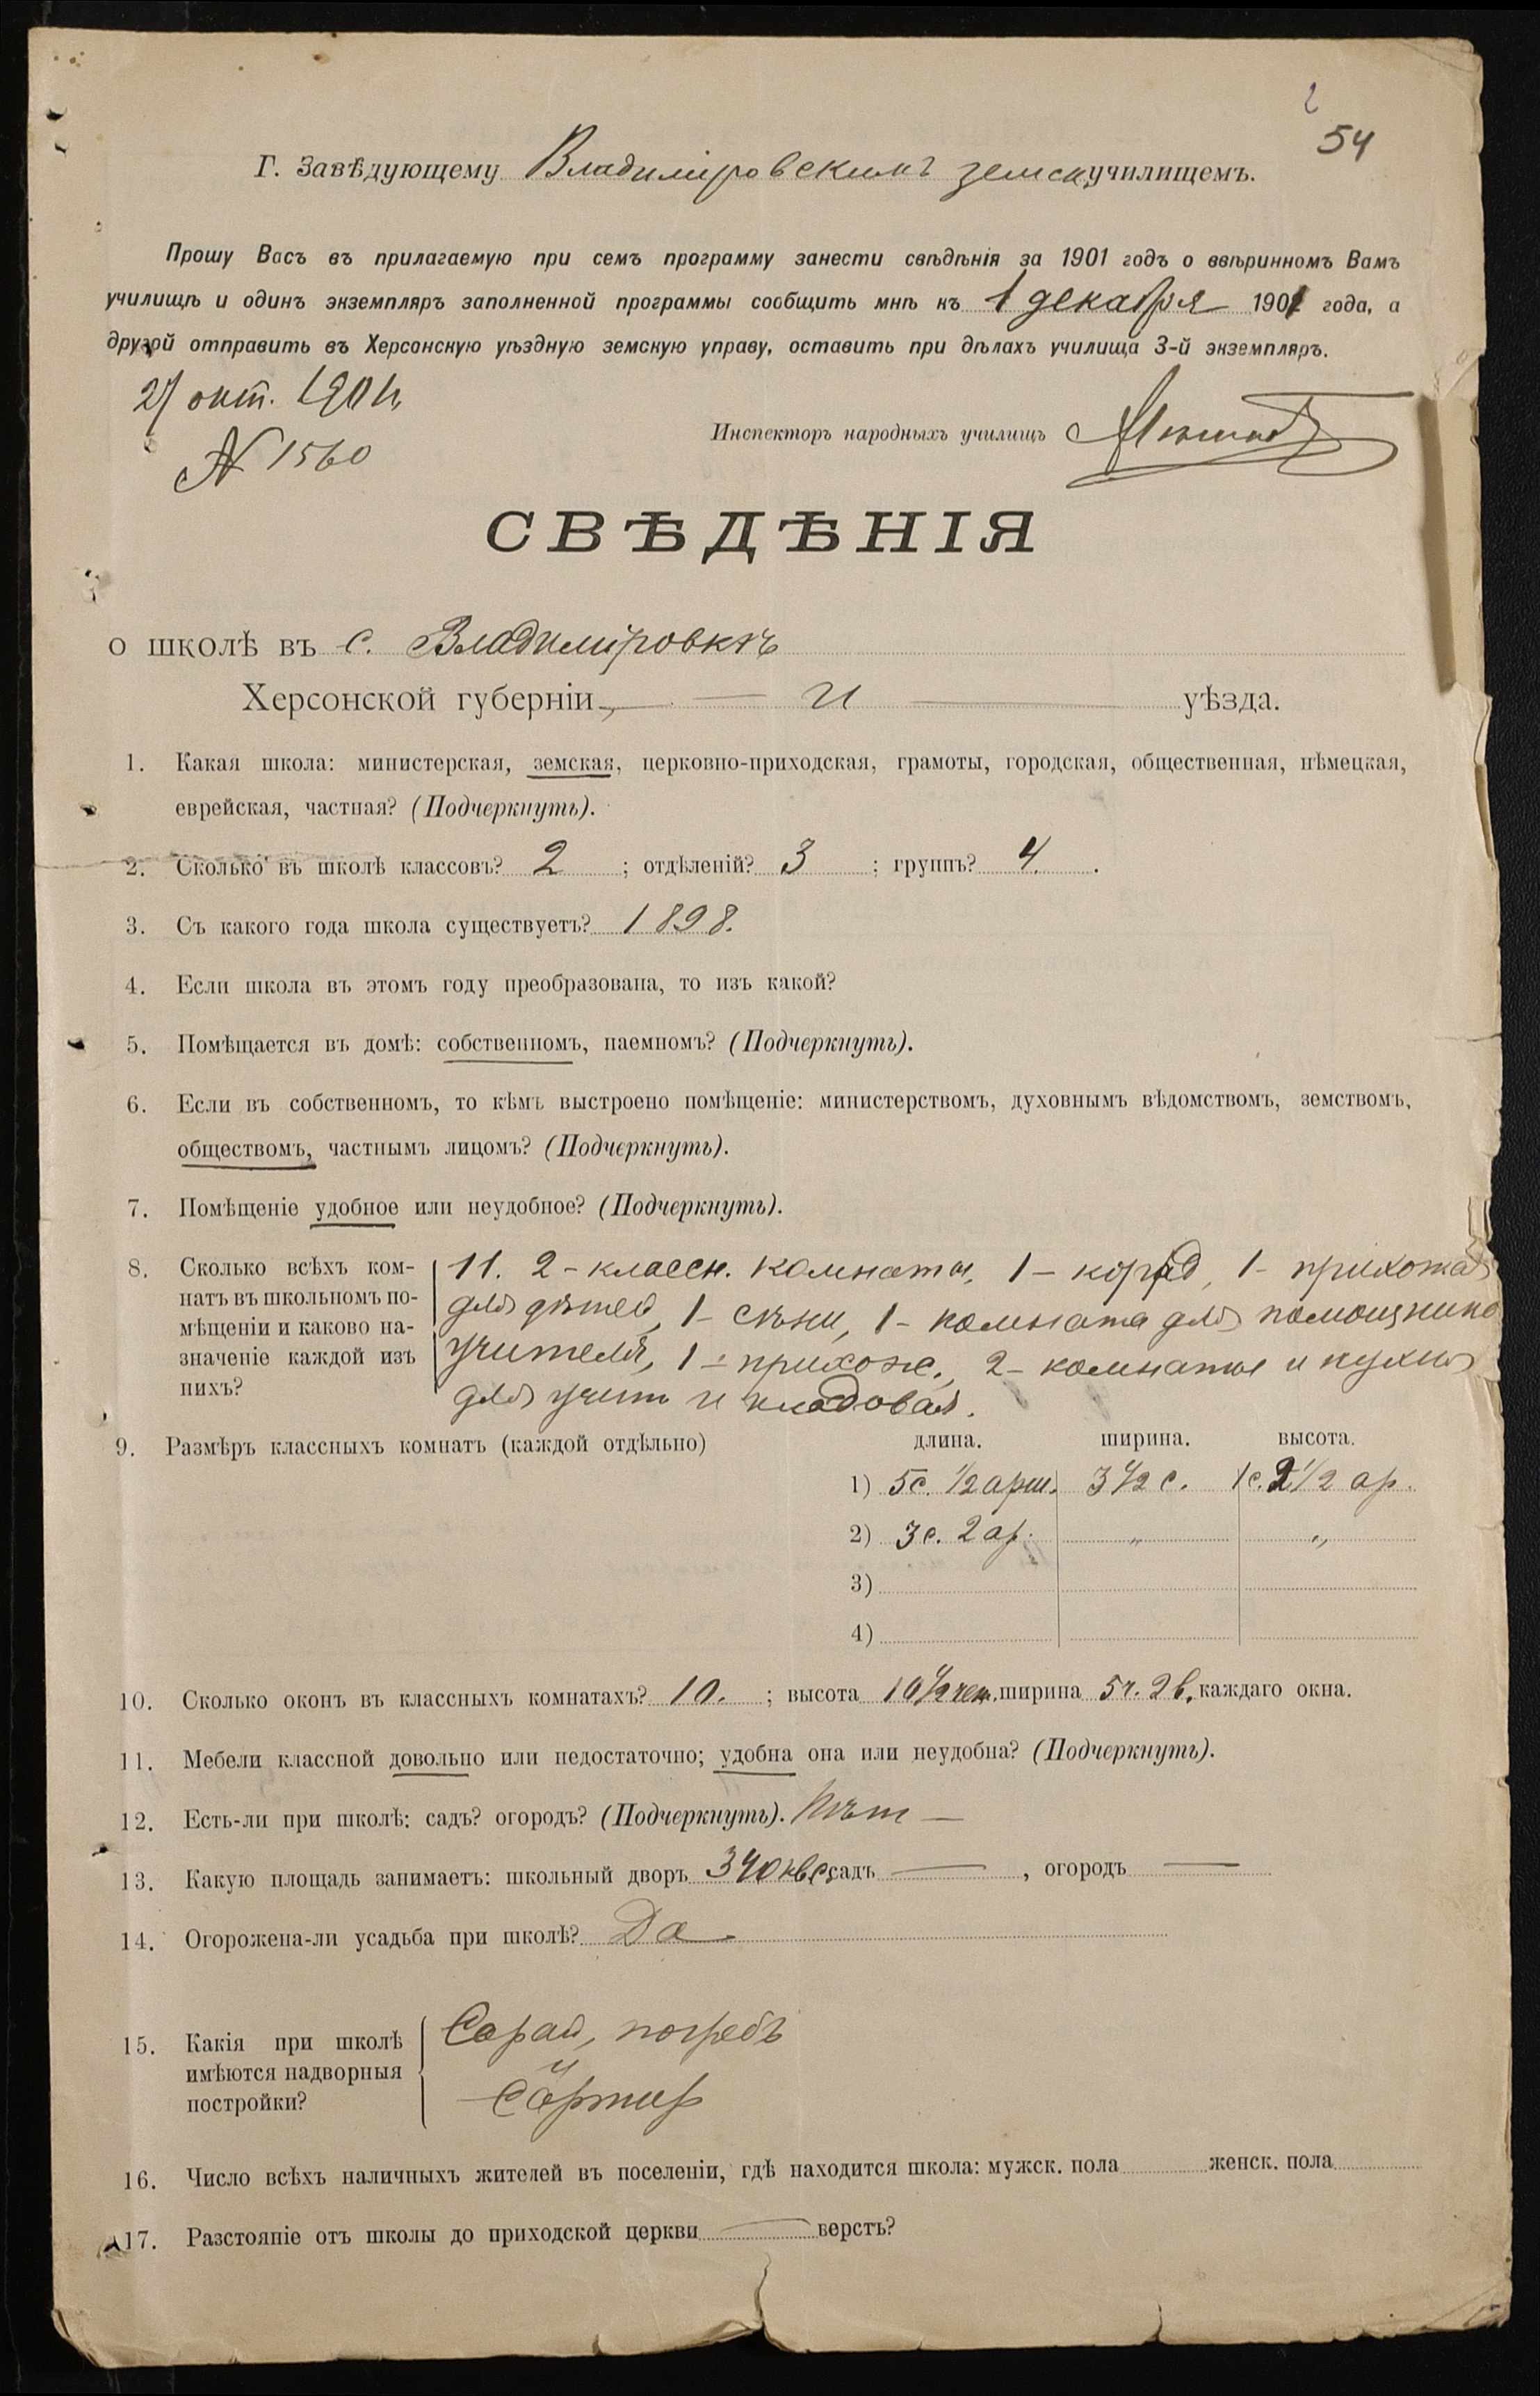 54
Г. Завѣдующему Владиміровскимъ земск. училищемъ.
Прошу Васъ въ прилагаемую при семъ программу занести свѣдѣнія за 1901 годъ о ввѣринномъ Вамъ
училищѣ и одинъ экземпляръ заполненной программы сообщить мнѣ къ 1 декабря 1901 года, а
другой отправить въ Херсонскую уѣздную земскую управу, оставить при дѣлахъ училища 3-й экземпляръ.
27 окт. 1901 г.
Инспекторъ народныхъ училищъ
№ 1560
СВѢДѢНІЯ
о школѣ въ с. Владиміровкѣ
Херсонской губерніи, — и — уѣзда.
1. Какая школа: министерская, земская, церковно-приходская, грамоты, городская, общественная, нѣмецкая,
еврейская, частная? (Подчеркнуть).
2. Сколько въ школѣ классовъ? 2 ; отдѣленій? 3 ; группъ? 4 .
3. Съ какого года школа существуетъ? 1898.
4. Если школа въ этомъ году преобразована, то изъ какой?
5. Помѣщается въ домѣ: собственномъ, наемномъ? (Подчеркнуть).
6. Если въ собственномъ, то кѣмъ выстроено помѣщеніе: министерствомъ, духовнымъ вѣдомствомъ, земствомъ,
обществомъ, частнымъ лицомъ? (Подчеркнуть).
7. Помѣщеніе удобное или неудобное? (Подчеркнуть).
8. Сколько всѣхъ ком-
натъ въ школьномъ по-
мѣщеніи и каково на-
значеніе каждой изъ
нихъ?
11. 2 - классн. комнаты, 1 - корид, 1 - прихожая
для дѣтей, 1 - сѣни, 1 - комната для помощника
учителя, 1 - прихож., 2 - комнаты и кухня
для учит и кладовая.
9. Размѣръ классныхъ комнатъ (каждой отдѣльно) длина. ширина. высота.
1) 5с. 1/2 арш. 3 1/2 с. 1с. 2 1/2 ар.
2) 3с. 2 ар. „ „
3)
4)
10. Сколько оконъ въ классныхъ комнатахъ? 10. ; высота 10 1/2 чет. ширина 5ч. 2в. каждаго окна.
11. Мебели классной довольно или недостаточно; удобна она или неудобна? (Подчеркнуть).
12. Есть-ли при школѣ: садъ? огородъ? (Подчеркнуть). Нѣт —
13. Какую площадь занимаетъ: школьный дворъ 340 кв. с. садъ — , огородъ —
14. Огорожена-ли усадьба при школѣ? Да
15. Какія при школѣ
имѣются надворныя
постройки?
Сарай, погребъ
и
сортир
16. Число всѣхъ наличныхъ жителей въ поселеніи, гдѣ находится школа: мужск. пола женск. пола
17. Разстояніе отъ школы до приходской церкви — верстъ?